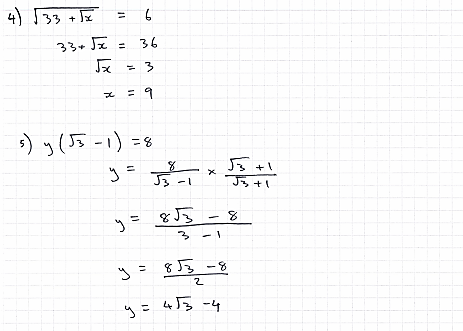 4) √(33 + √x) = 6
33 + √x = 36
√x = 3
x = 9
5) y(√3 - 1) = 8
y = 8/(√3 - 1) × (√3 + 1)/(√3 + 1)
y = (8√3 - 8)/(3 - 1)
y = (8√3 - 8)/2
y = 4√3 - 4